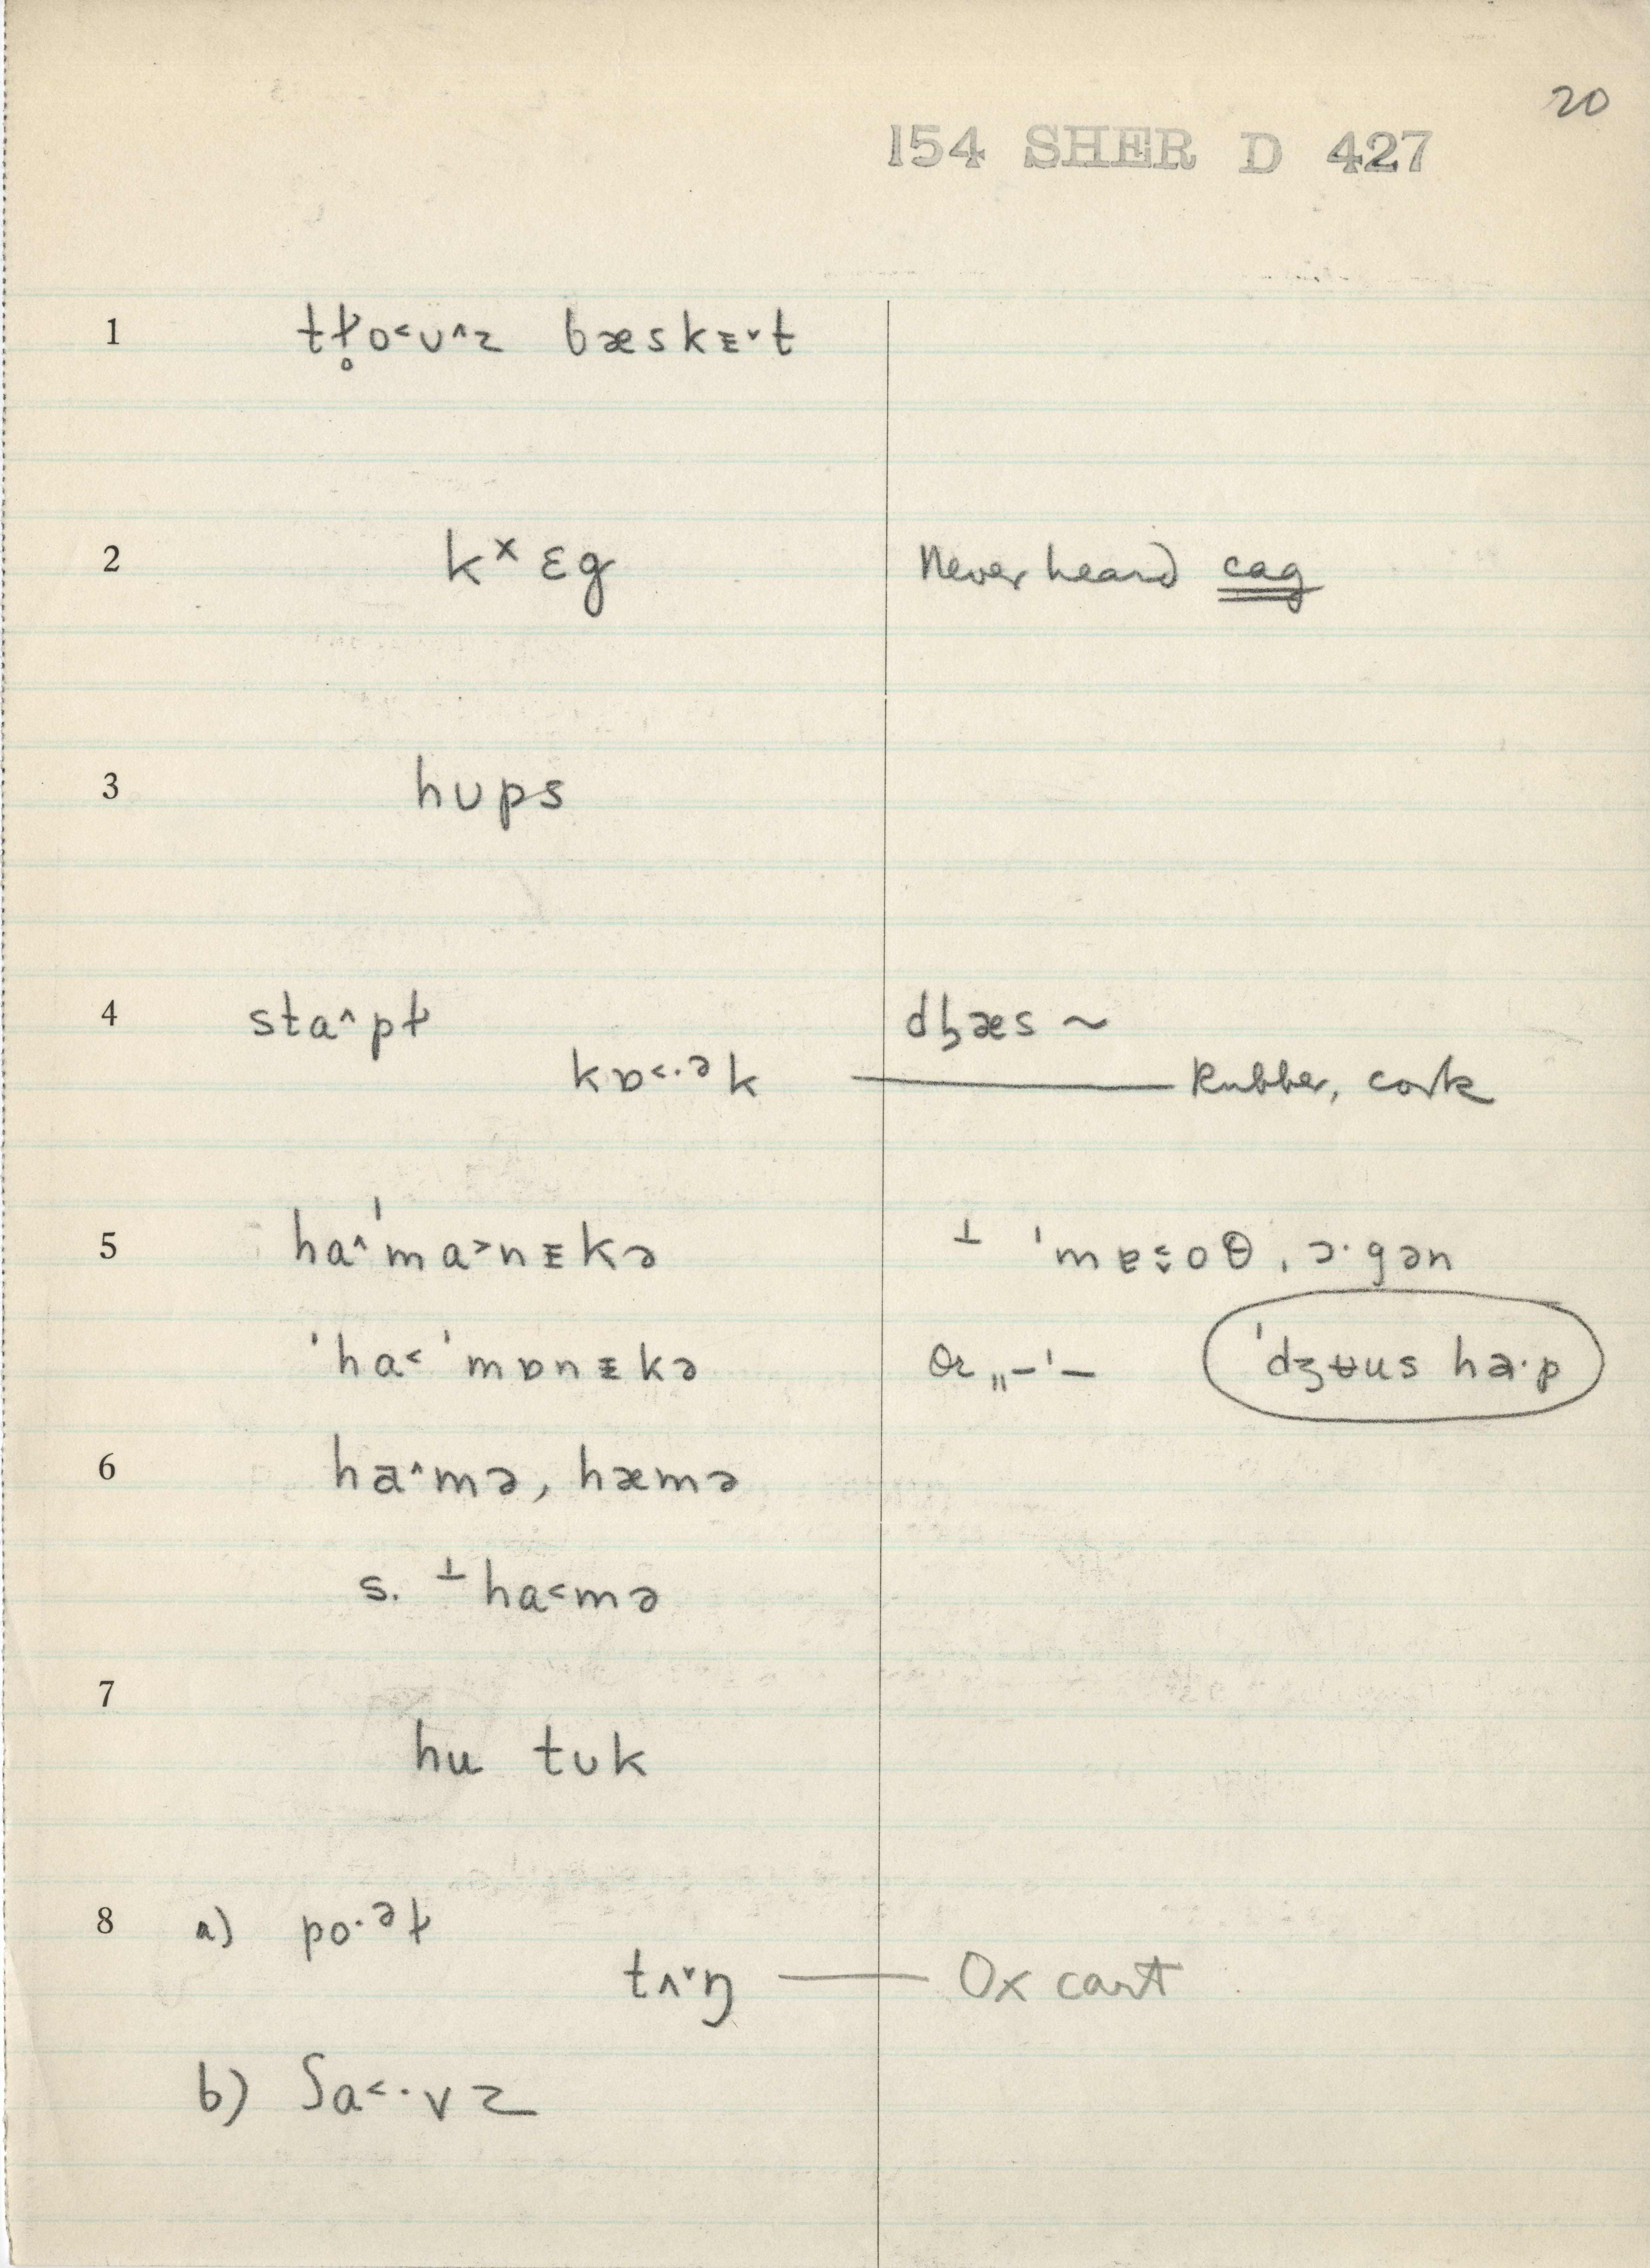 20
154 SHER D 427
1 tɫ̥o˂ʊ˄z bæskᵻ˅t
2 kˣɛg Never heard cag
3 hʊps
4 sta˄pɫ dʒæs ~
kɒ˂·ᵊk — Rubber, cork
5 ha˄ˈma˃nᵻkə ⊥ ˈmɐ˂oθ, ɔ·gən
ˈha˂ˈmɒnᵻkə or „–ˈ– ˈdʒʉus ha·p
6 ha˄mə, hæmə
s. ⊥ha˂mə
7
hu tʊk
8 a) po·ᵊɫ
tʌ˅ŋ — Ox cart
b) ʃa˂·vz